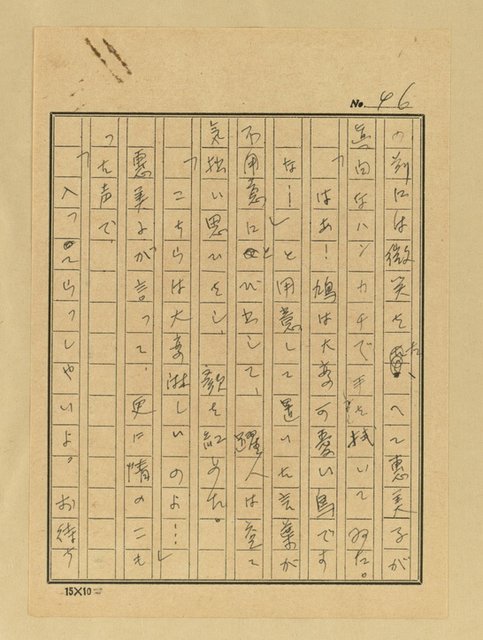 No. 46
の前には微笑をたたへて惠美子が
真白なハンカチで手を拭いて居た。
「はあ!鳩は大変可愛い鳥です
な—」と用意して置いた言葉が
不用意にとび出して、人は全く
気拙い思ひをし、顔を紅めた。
「こちらは大変淋しいのよ…」
惠美子が言って、更に情のこも
った声で、
「入ってらっしやいよ。お待ち
15×10